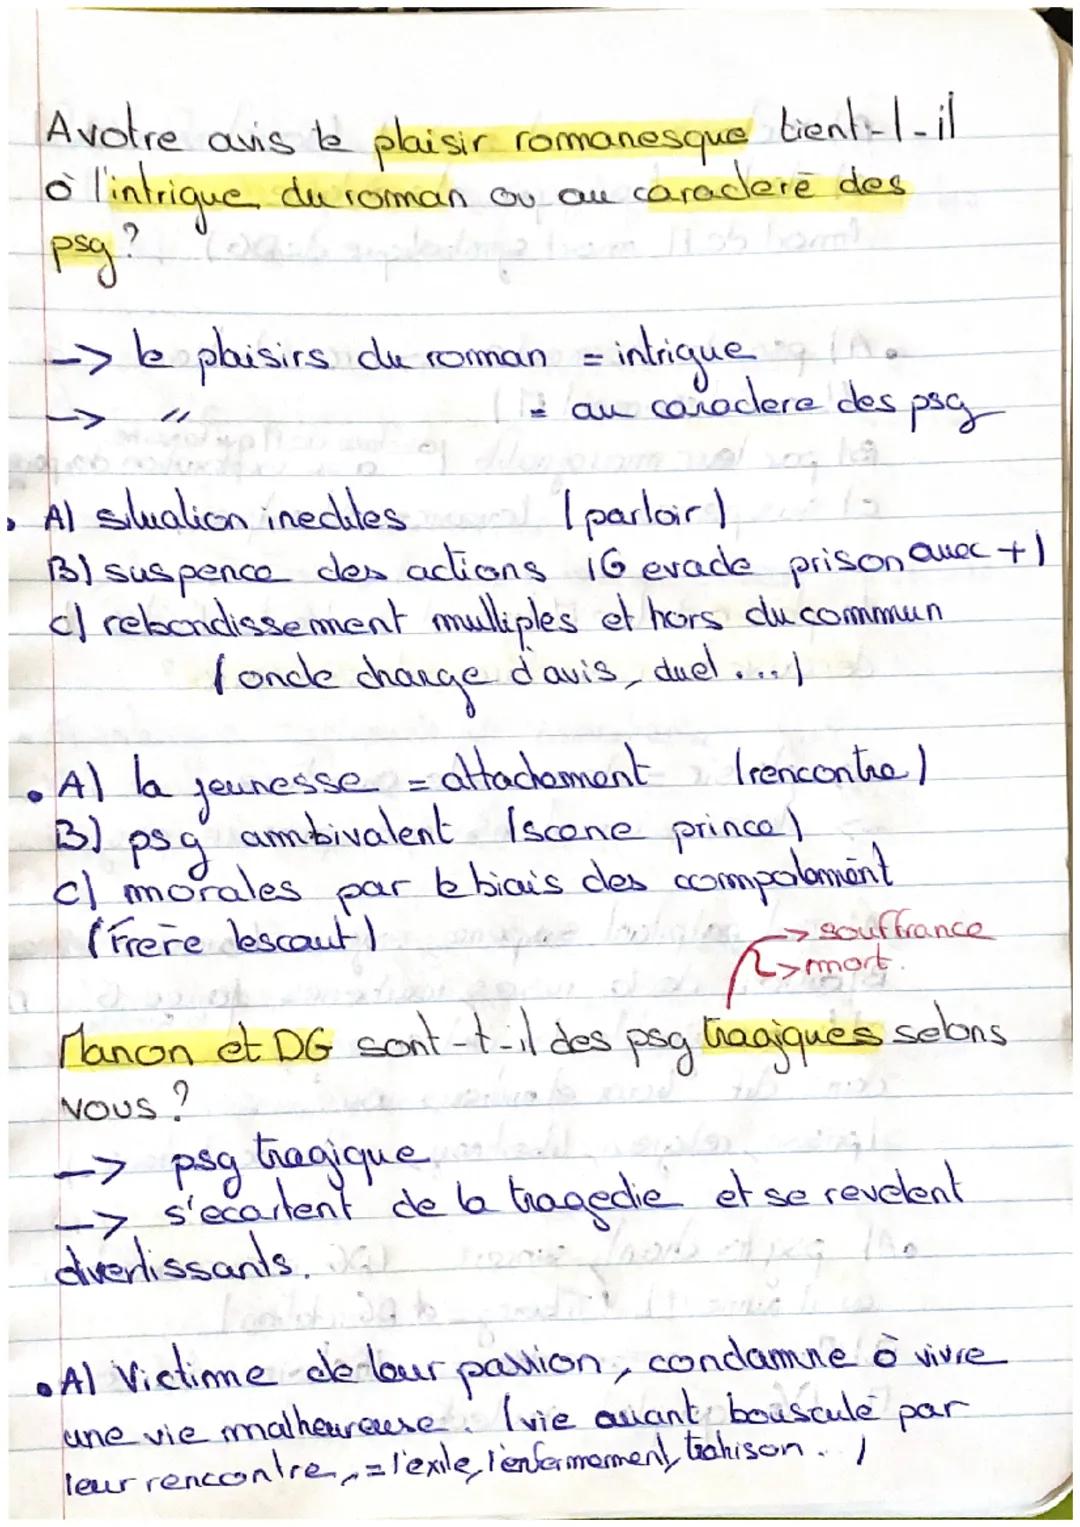 A votre avis le plaisir romanesque tient-t-il
à l'intrigue du roman ou au caractere des
psg ?
-> le plaisirs du roman = intrigue
-> " = au caractere des psg
A) situation inedites (parloir)
B) suspence des actions (G evade prison avec +)
c) rebondissement multiples et hors du commun
(oncle change d'avis, duel ...)
• A) la jeunesse = attachement (rencontre)
B) psg ambivalent (scene prince)
c) morales par le biais des comportement
(Frere lescaut)
-> souffrance
-> mort.
Manon et DG sont-t-il des psg tragiques selons
vous ?
-> psg tragique
-> s'ecartent de la tragedie et se revelent
divertissants.
• A) Victime de leur passion, condamne à vivre
une vie malheureuse. (vie avant bousculé par
leur rencontre, = l'exile, l'enfermement, trahison..)